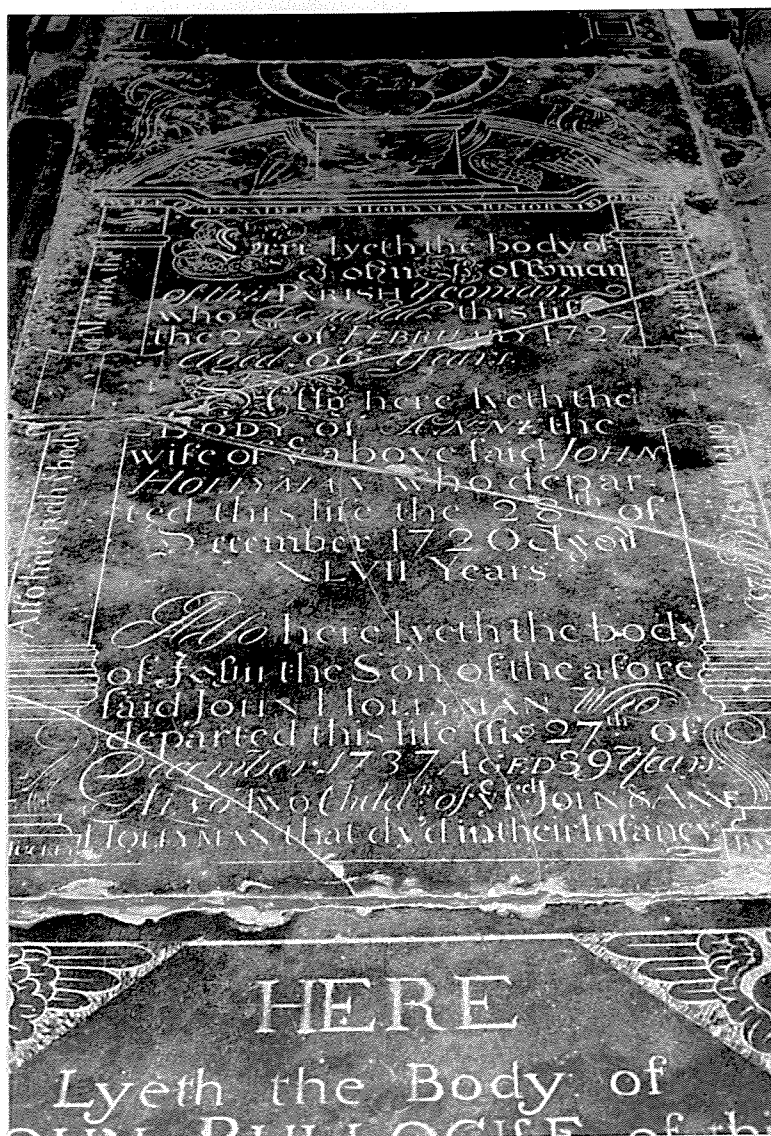 Here lyeth the body of
John Hollyman
of this PARISH Yeoman
who departed this life
the 27 of FEBRUARY 1727
Aged 66 Years
Also here lyeth the
BODY of ANNE the
wife of ye above said JOHN
HOLLYMAN who depar-
ted this life the 28th of
December 1720 Aged
XLVII Years
Also here lyeth the body
of John the Son of the afore
said JOHN HOLLYMAN Who
departed this life the 27th of
December 1737 AGED 39 Years
Also two Childn of ye sd JOHN & ANNE
HOLLYMAN that dy'd in their Infancy
Also here lyeth ye body
of Martha the
HERE
Lyeth the Body of
JOHN BULLOCKE of this